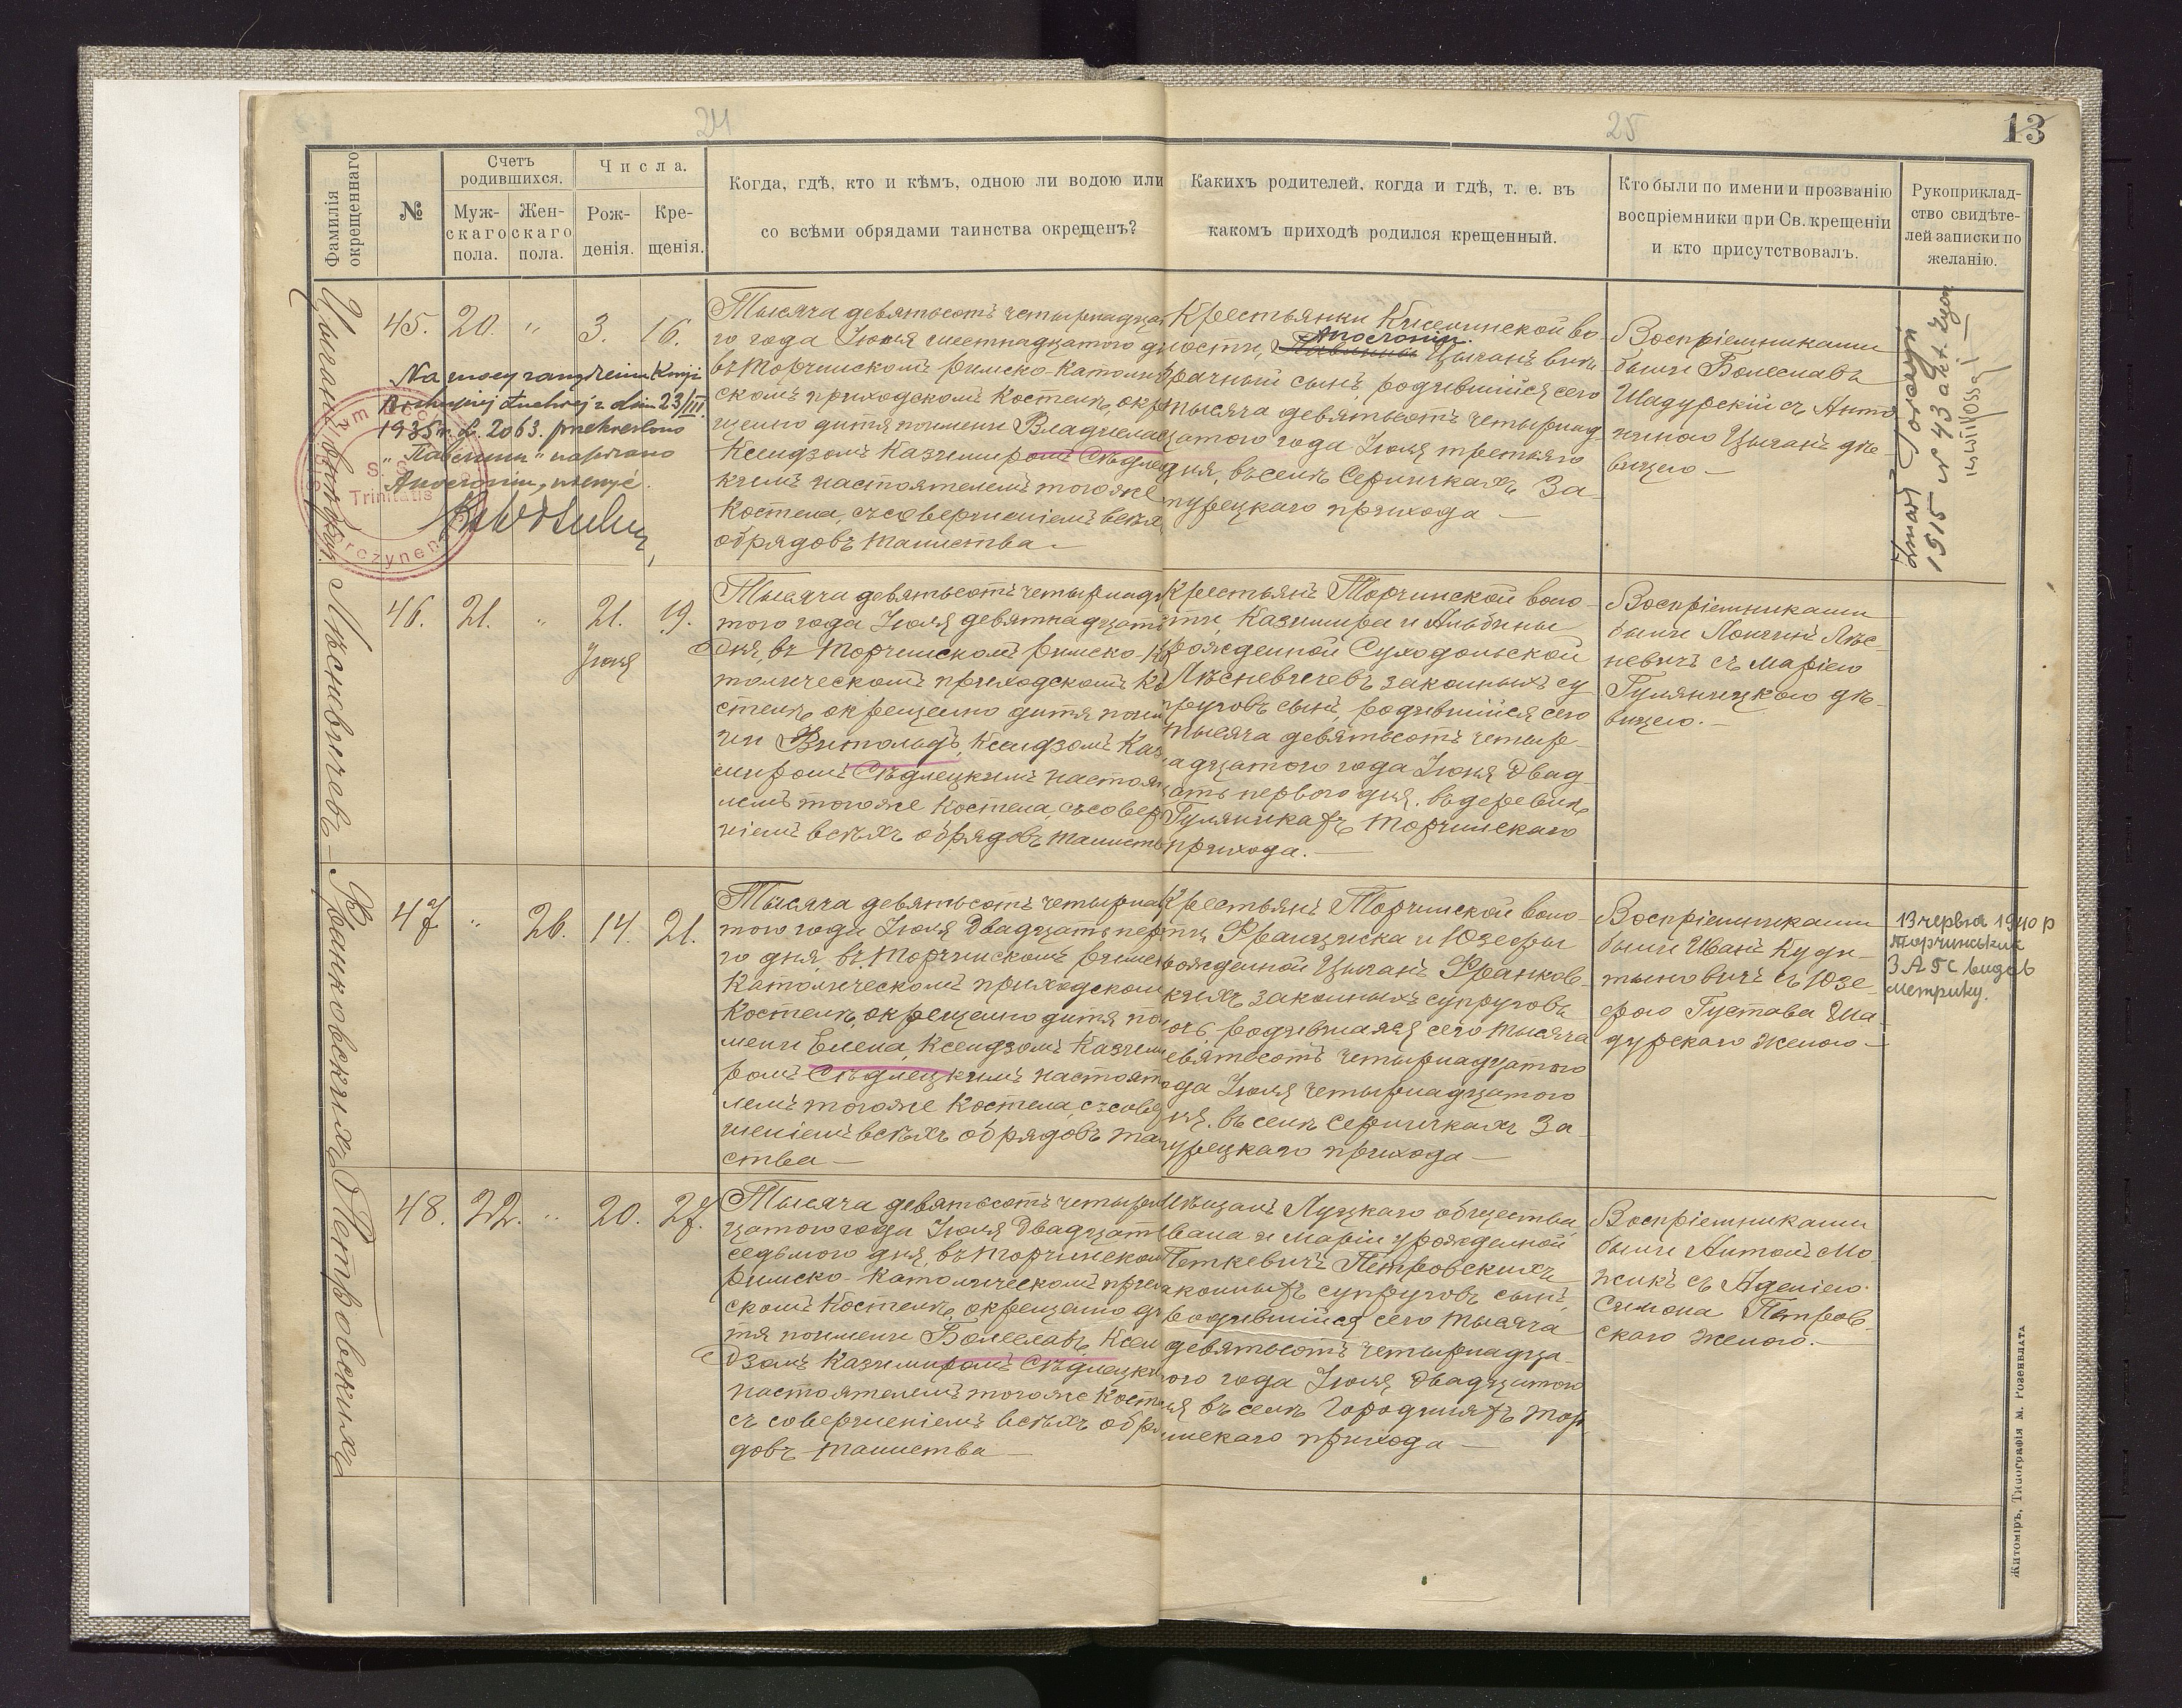 24
25
13
Фамилія окрещеннаго
№
Счетъ родившихся.
Муж-
скаго
пола.
Жен-
скаго
пола.
Числа.
Рож-
денія.
Кре-
щенія.
Когда, гдѣ, кто и кѣмъ, одною ли водою или
со всѣми обрядами таинства окрещенъ?
Какихъ родителей, когда и гдѣ, т. е. въ
какомъ приходѣ родился крещенный.
Кто были по имени и прозванію
воспріемники при Св. крещеніи
и кто присутствовалъ.
Рукоприклад-
ство свидѣте-
лей записки по
желанію.
45. 20. " 3. 16.
Na mocy
1935 r. L. 2063.
S. S.
Trinitatis
Тысяча девятьсотъ четырнадца
го года Іюля шестнадцатого д
въ Торчинскомъ римско-католи
скомъ приходскомъ костелѣ, окр
щено дитя по имени Владисла
Ксендзомъ Казимиромъ Сѣдлец
кимъ настоятелемъ тогоже
костела, съ совершеніемъ всѣх
обрядовъ таинства —
Крестьянки Киселинской во-
лости, Цыганъ внѣ
брачный сынъ, родившійся сего
тысяча девятьсотъ четырнад-
цатого года Іюля третьяго
дня, въ селѣ Серничкахъ За-
турецкаго прихода —
Воспріемниками
были Болеславъ
Шадурскій съ Анто
ниною Цыганъ дѣ-
вицею —
1915 № 43 akt. zgon
Лѣсневичевъ —
46. 21. " 21. 19.
Іюня
Тысяча девятьсотъ четырнадц
того года Іюля девятнадцато
дня, въ Торчинскомъ римско-к
толическомъ приходскомъ ко
стелѣ окрещено дитя по им
ни Витольдъ, Ксендзомъ Каз
миромъ Сѣдлецкимъ настоят
лемъ тогоже костела, съ совер
ніемъ всѣхъ обрядовъ таинств
Крестьянъ Торчинской воло-
сти, Казимира и Альбины
рожденной Суходольской
Лѣсневичевъ законныхъ су
пруговъ сынъ, родившійся сего
тысяча девятьсотъ четыр-
надцатого года Іюня двад-
цать перваго дня. въ деревнѣ
Гуляникахъ Торчинскаго
прихода. —
Воспріемниками
были Лонгинъ Лѣс-
невичъ съ Маріею
Гуляницкою дѣ-
вицею. —
Франковскихъ
47 " 26. 14. 21.
Тысяча девятьсотъ четырна
того года Іюля двадцать пер
го дня, въ Торчинскомъ римс
католическомъ приходском
костелѣ, окрещено дитя по
мени Елена, Ксендзомъ Казим
ромъ Сѣдлецкимъ настоят
лемъ тогоже костела, съ сове
шеніемъ всѣхъ обрядовъ та
ства —
Крестьянъ Торчинской воло-
сти, Францишка и Юзефы
рожденной Цыганъ Франков-
скихъ законныхъ супруговъ
дочь, родившаяся сего тысяча
девятьсотъ четырнадцатого
года Іюля четырнадцатого
дня. въ селѣ Серничкахъ За-
турецкаго прихода —
Воспріемниками
были Иванъ Куди-
тыновичъ съ Юзе-
фою Густава Ша-
дурскаго женою —
13 червня 1940 р
Торчинський
ЗАГС видав
метрику.
Петровскихъ
48. 22. " 20. 27.
Тысяча девятьсотъ четырн
цатого года Іюля двадцать
седьмого дня, въ Торчинском
римско-католическомъ прих
скомъ костелѣ, окрещено ди
тя по имени Болеславъ, Ксен
дзомъ Казимиромъ Сѣдлецки
настоятелемъ тогоже косте
съ совершеніемъ всѣхъ обря
довъ таинства —
Мѣщанъ Луцкаго общества
Ивана и Маріи урожденной
Петкевичъ Петровскихъ
законныхъ супруговъ сынъ,
родившійся сего тысяча
девятьсотъ четырнадца-
того года Іюля двадцатого
дня въ селѣ Городиняхъ Тор
чинскаго прихода —
Воспріемниками
были Антонъ Мо-
жикъ съ Аделіею
Симона Петров-
скаго женою. —
Житоміръ, Типографія М. Розенблата